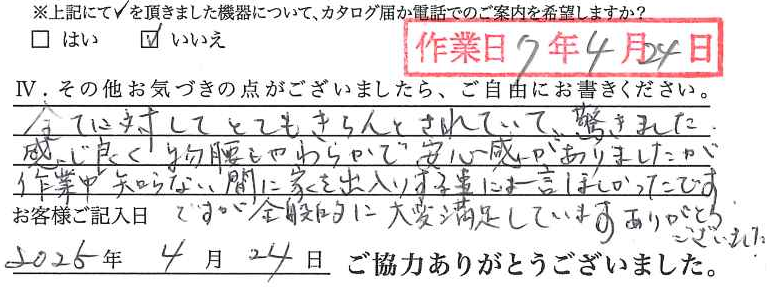 ※上記にて✓を頂きました機器について、カタログ届か電話でのご案内を希望しますか?
☐ はい ☑ いいえ
作業日 7年4月24日
Ⅳ．その他お気づきの点がございましたら、ご自由にお書きください。
全てに対してとてもきちんとされていて、驚きました.
感じ良く物腰もやわらかで安心感がありましたが
作業中知らない間に家を出入りする事には一言ほしかったです
お客様ご記入日 ですが全般的に大変満足していますありがとう
ございました
2025年 4月 24日 ご協力ありがとうございました。